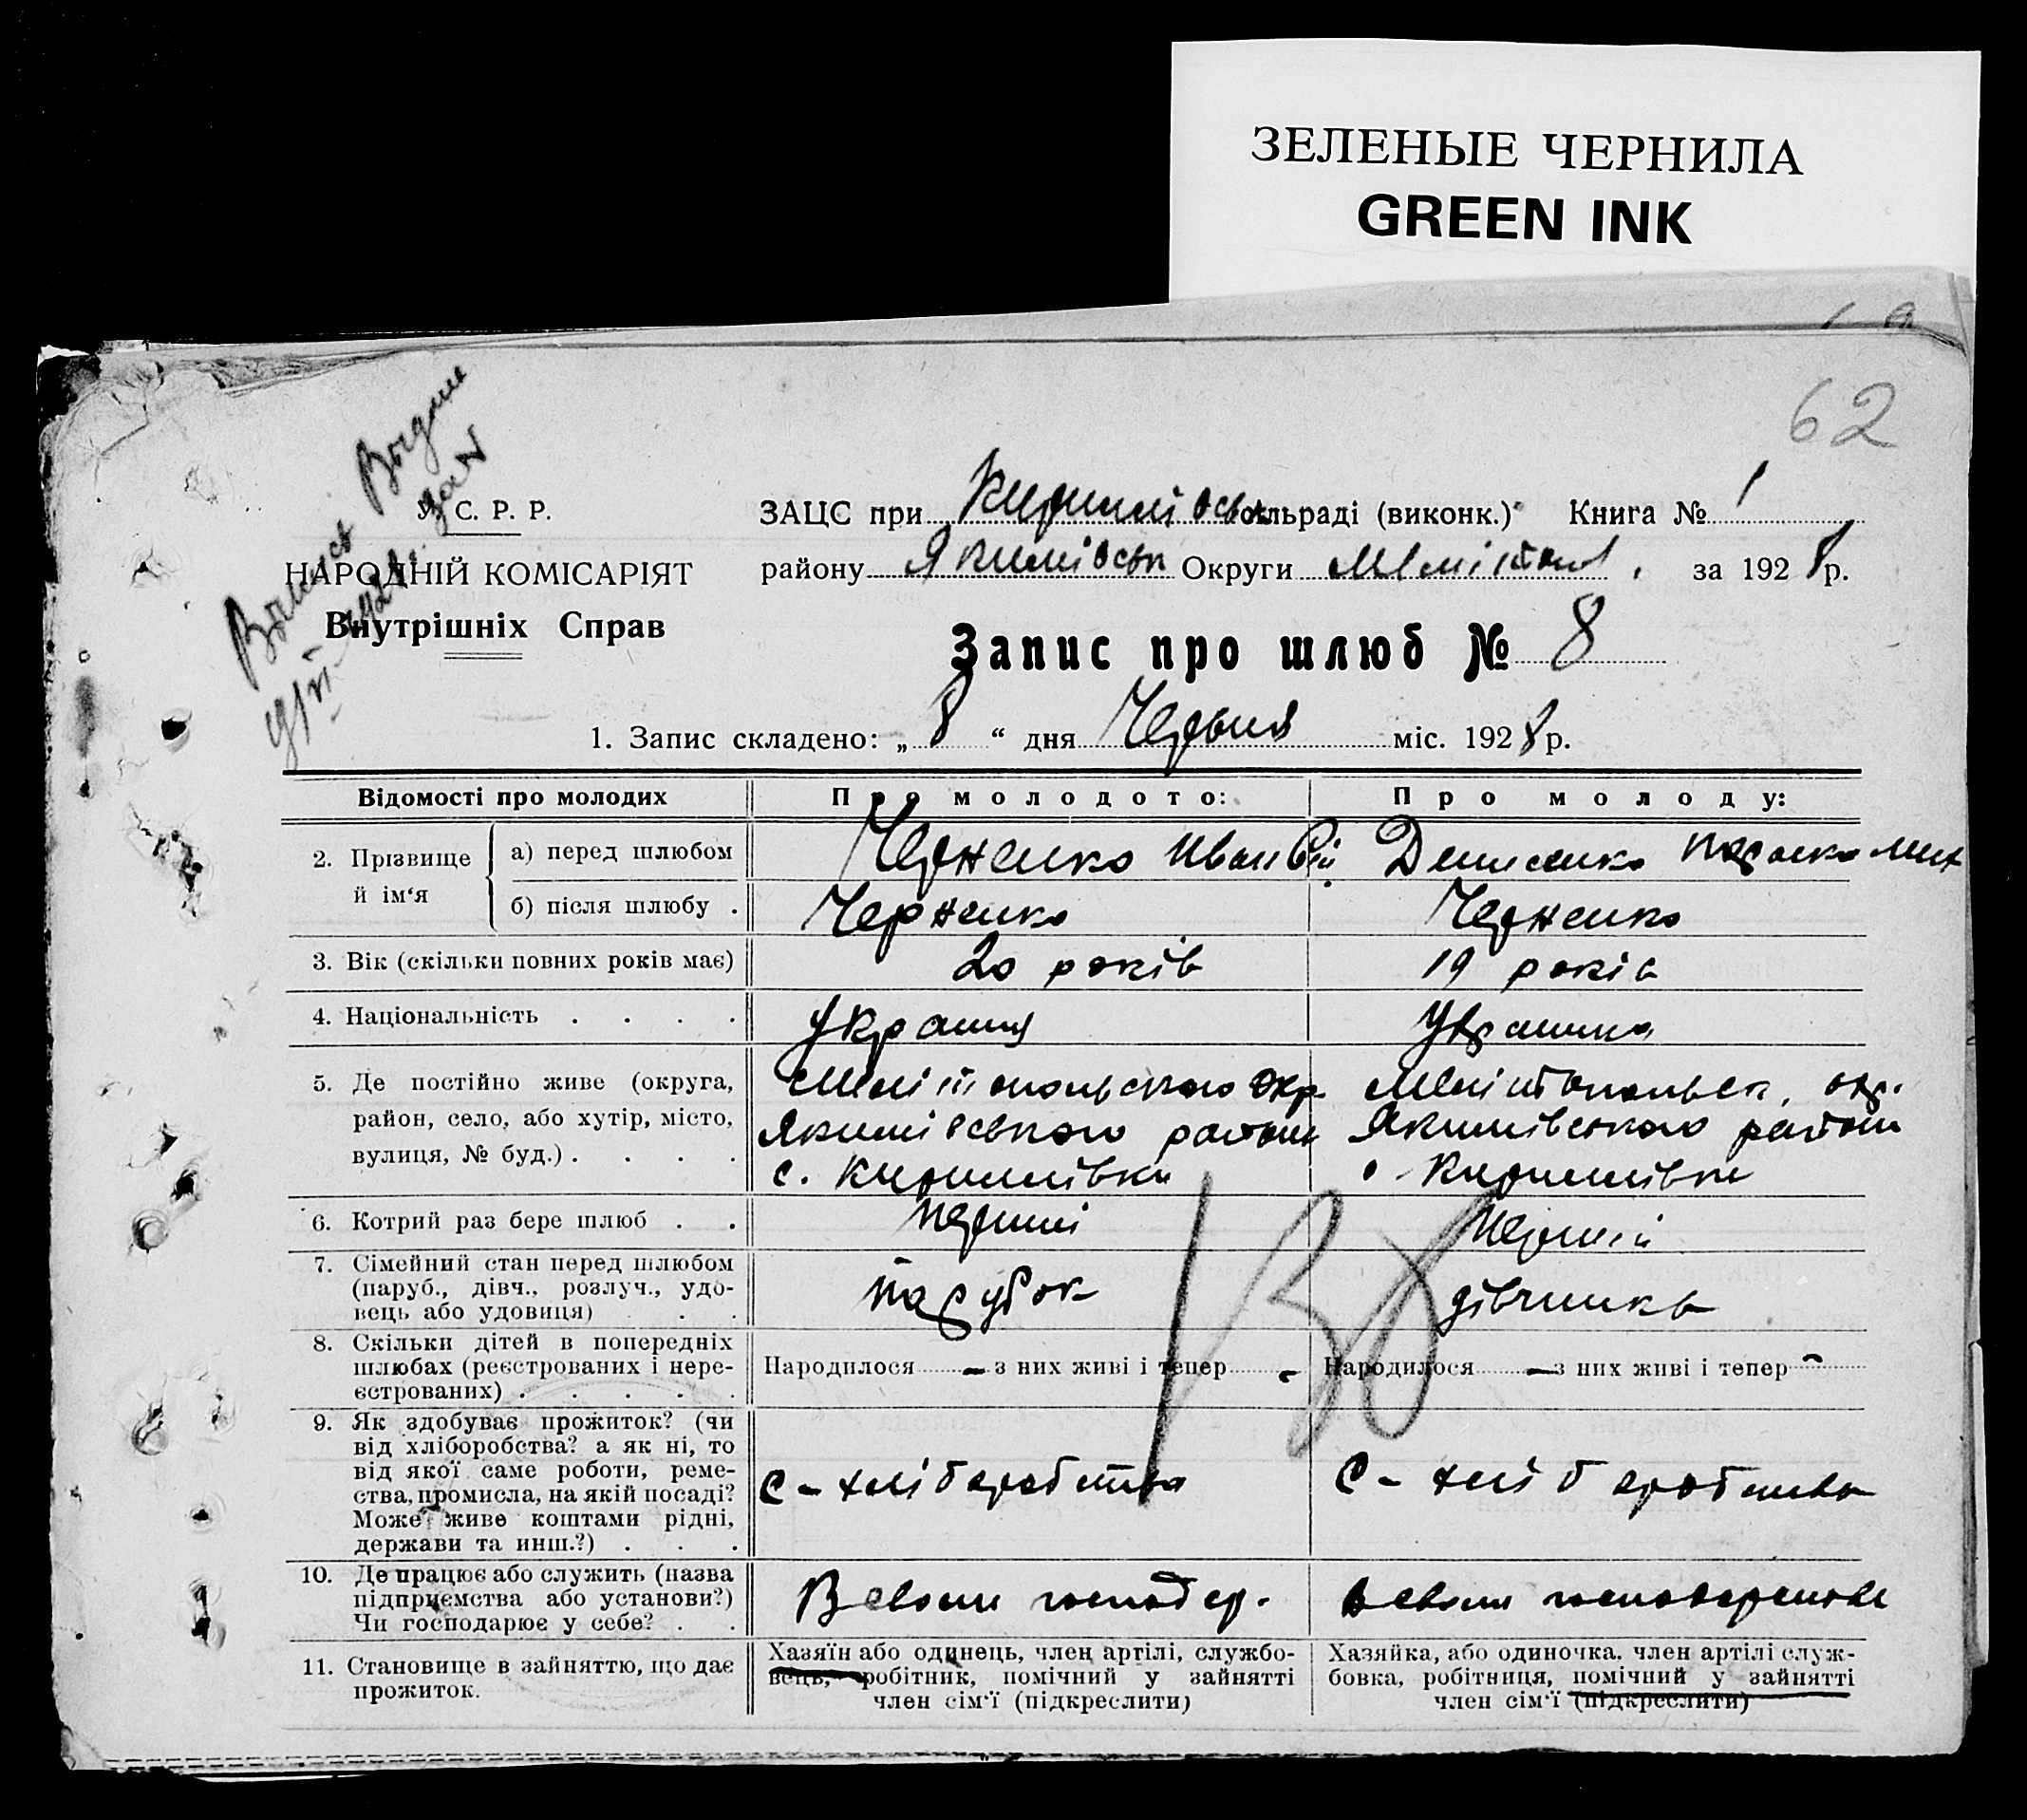 ЗЕЛЕНЫЕ ЧЕРНИЛА
GREEN INK
62
У. С. Р. Р.
НАРОДНІЙ КОМІСАРІЯТ
Внутрішніх Справ
ЗАЦС при Кирилівськ сільраді (виконк.) Книга № 1
району Якимівськ Округи Меліт за 1928 р.
Запис про шлюб № 8
1. Запис складено: „ 8 “ дня Червня міс. 1928 р.
Відомості про молодих Про молодого: Про молоду:
2. Прізвище й ім‘я
а) перед шлюбом Черненко Иван Денисенко Параска Мих
б) після шлюбу . Черненко Черненко
3. Вік (скільки повних років має) 20 років 19 років
4. Національність . . . . Украинц Украинка
5. Де постійно живе (округа, район, село, або хутір, місто, вулиця, № буд.) . . . .
Мелітопольського окр.
Якимівського району
с. Кирилівки
Мелітопольськ. окр.
Якимівського району
с. Кирилівки
6. Котрий раз бере шлюб . . перший перший
7. Сімейний стан перед шлюбом
(паруб., дівч., розлуч., удо-
вець або удовиця) . . .
парубок дівчинка
130
8. Скільки дітей в попередніх
шлюбах (реєстрованих і нере-
єстрованих) . . . . .
Народилося — з них живі і тепер - Народилося — з них живі і тепер -
9. Як здобуває прожиток? (чи
від хліборобства? а як ні, то
від якої саме роботи, реме-
ства, промисла, на якій посаді?
Може живе коштами рідні,
держави та инш.?) . . .
С - хліборобства С - хліборобства
10. Де працює або служить (назва
підприємства або установи?)
Чи господарює у себе? . .
В своем господар. в своем господарстве
11. Становище в зайняттю, що дає
прожиток.
Хазяїн або одинець, член артілі, службо-
вець, робітник, помічний у зайнятті
член сім‘ї (підкреслити)
Хазяйка, або одиночка, член артілі служ-
бовка, робітниця, помічний у зайнятті
член сім‘ї (підкреслити)